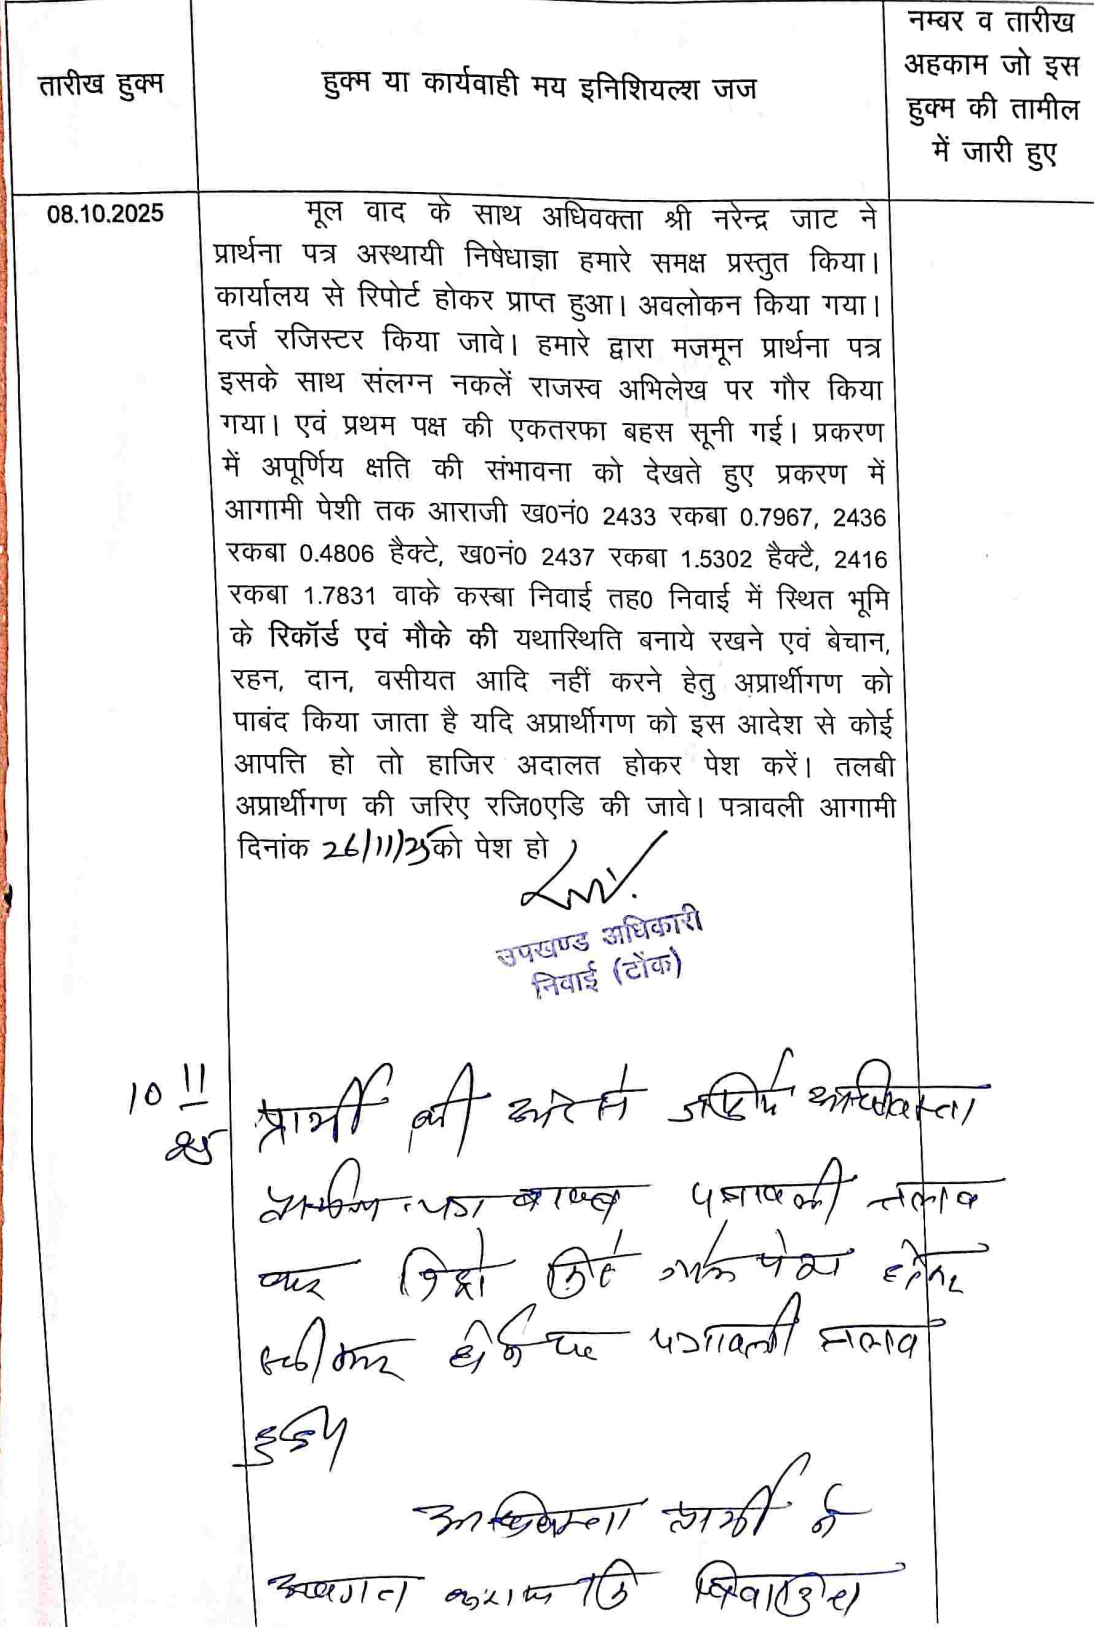 तारीख हुक्म
हुक्म या कार्यवाही मय इनिशियल्श जज
नम्बर व तारीख
अहकाम जो इस
हुक्म की तामील
में जारी हुए
08.10.2025
मूल वाद के साथ अधिवक्ता श्री नरेन्द्र जाट ने
प्रार्थना पत्र अस्थायी निषेधाज्ञा हमारे समक्ष प्रस्तुत किया।
कार्यालय से रिपोर्ट होकर प्राप्त हुआ। अवलोकन किया गया।
दर्ज रजिस्टर किया जावे। हमारे द्वारा मजमून प्रार्थना पत्र
इसके साथ संलग्न नकलें राजस्व अभिलेख पर गौर किया
गया। एवं प्रथम पक्ष की एकतरफा बहस सूनी गई। प्रकरण
में अपूर्णिय क्षति की संभावना को देखते हुए प्रकरण में
आगामी पेशी तक आराजी ख0नं0 2433 रकबा 0.7967, 2436
रकबा 0.4806 हैक्टे, ख0नं0 2437 रकबा 1.5302 हैक्टै, 2416
रकबा 1.7831 वाके कस्बा निवाई तह0 निवाई में स्थित भूमि
के रिकॉर्ड एवं मौके की यथास्थिति बनाये रखने एवं बेचान,
रहन, दान, वसीयत आदि नहीं करने हेतु अप्रार्थीगण को
पाबंद किया जाता है यदि अप्रार्थीगण को इस आदेश से कोई
आपत्ति हो तो हाजिर अदालत होकर पेश करें। तलबी
अप्रार्थीगण की जरिए रजि0एडि की जावे। पत्रावली आगामी
दिनांक 26/11/25 को पेश हो
उपखण्ड अधिकारी
निवाई (टोंक)
10 11
25
प्रार्थी की ओर से जरिये अधिवक्ता
पत्रावली तलब
पेश होकर
पत्रावली तलब
हुई
अधिवक्ता प्रार्थी ने
अवगत कराया कि